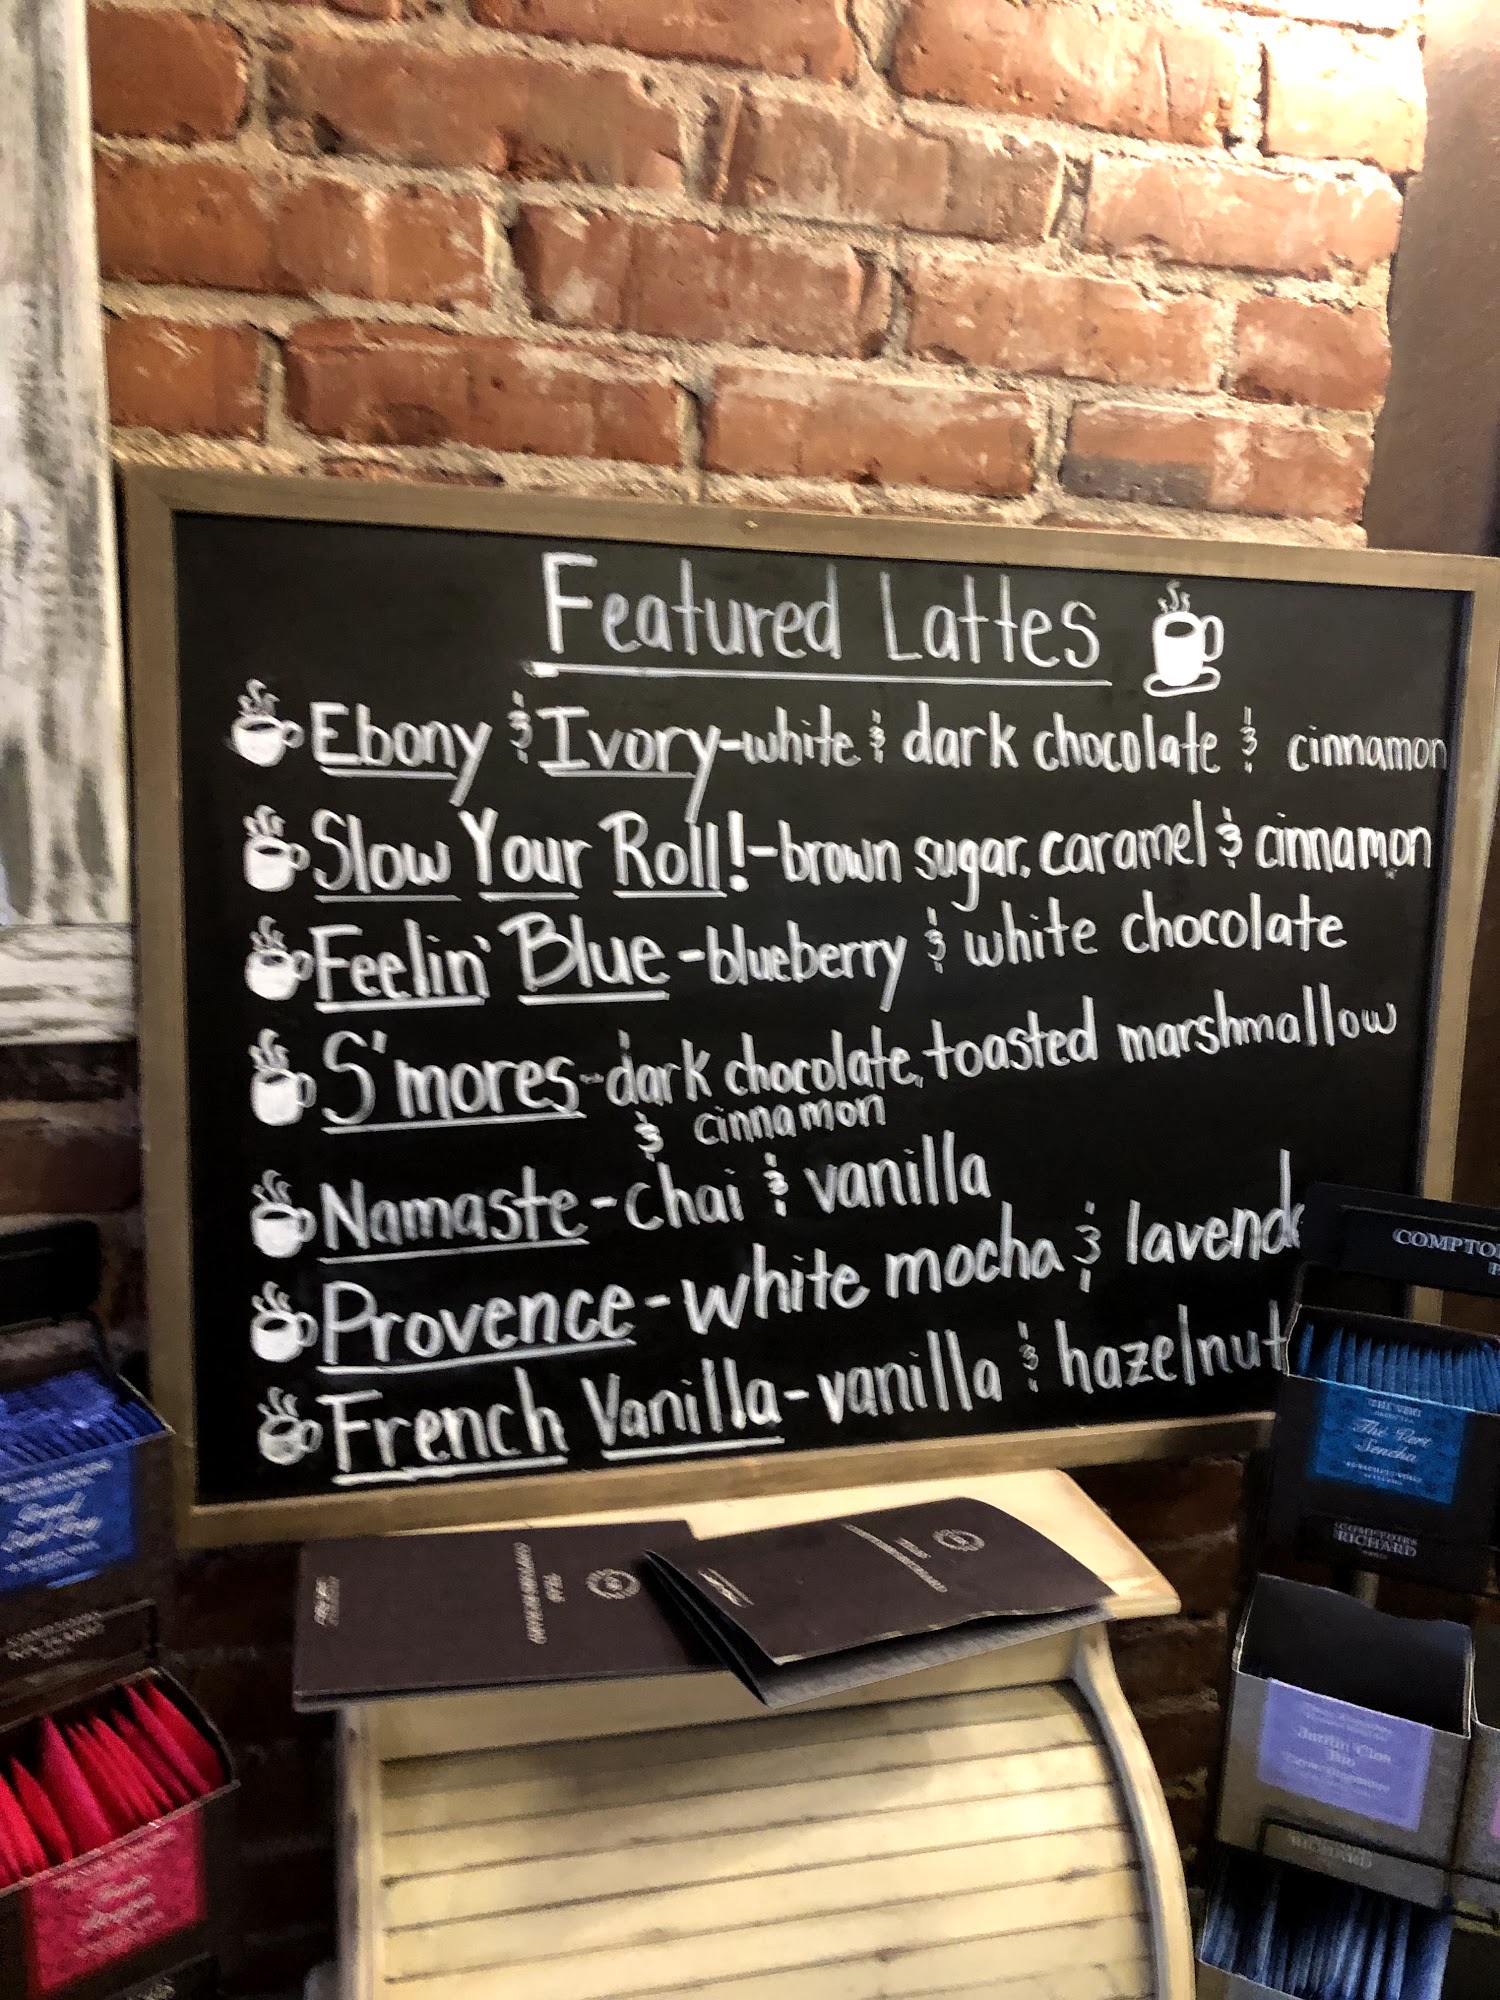 Featured Lattes
Ebony & Ivory-white & dark chocolate & cinnamon
Slow Your Roll!-brown sugar, caramel & cinnamon
Feelin' Blue-blueberry & white chocolate
S'mores-dark chocolate, toasted marshmallow
& cinnamon
Namaste-chai & vanilla
Provence-white mocha & lavende
French Vanilla-vanilla & hazelnut
COMPTO
Thé Vert
Sencha
COMPTOIRS
RICHARD
PARIS